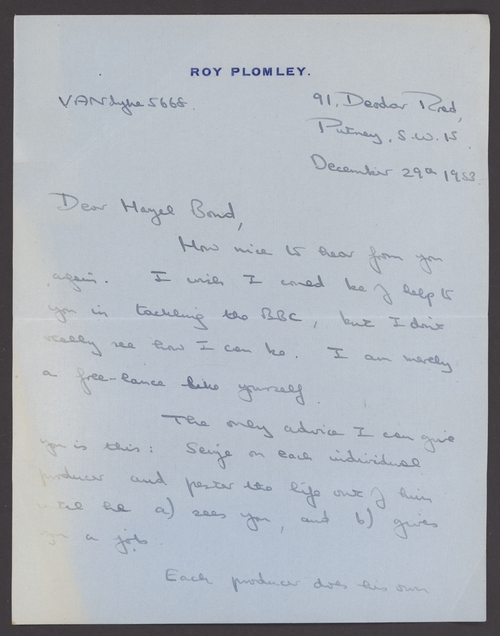 ROY PLOMLEY.
VANdyke 5668.
91, Deodar Road,
Putney, S.W.15.
December 29th 1953
Dear Hazel Bond,
How nice to hear from you
again. I wish I could be of help to
you in tackling the BBC, but I don't
really see how I can be. I am merely
a free-lance like yourself.
The only advice I can give
you is this: Seize on each individual
producer and pester the life out of him
until he a) sees you, and b) gives
you a job.
Each producer does his own